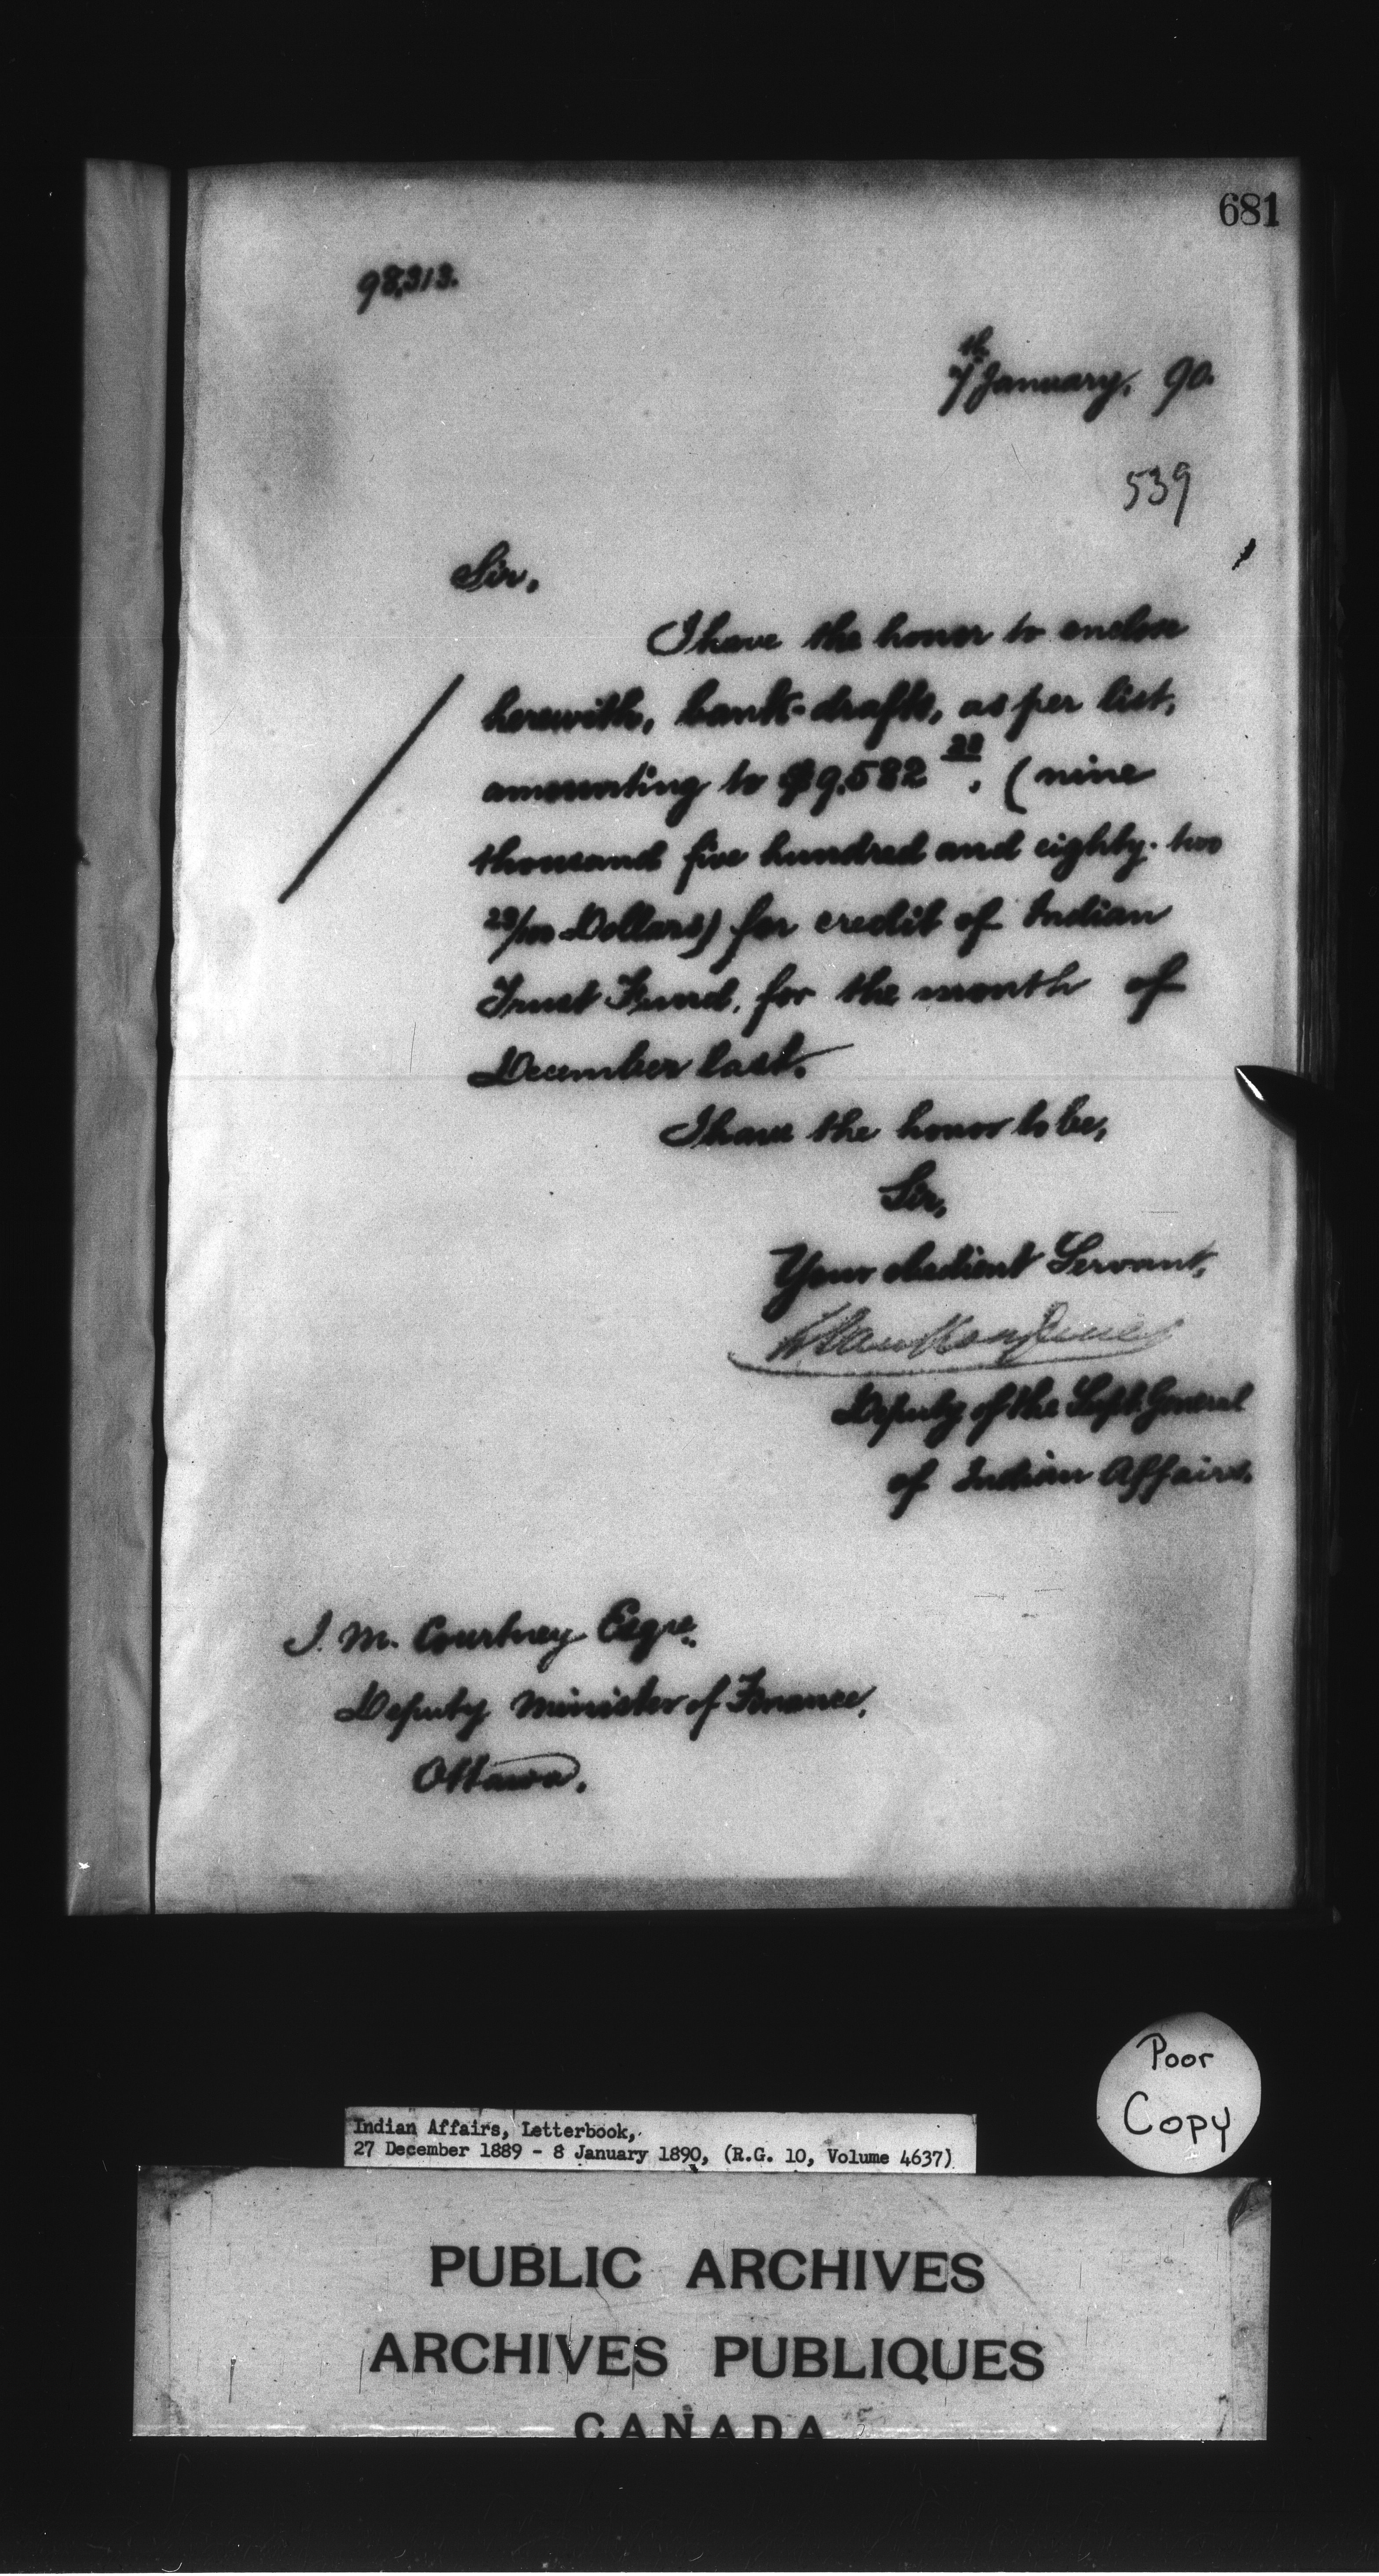 681
98,313.
7th January, 90.
539
Sir,
I have the honor to enclose
herewith, bank-drafts, as per list,
amounting to $9,582 28, (nine
thousand five hundred and eighty-two
28/100 Dollars) for credit of Indian
Trust Fund, for the month of
December last.
I have the honor to be,
Sir,
Your obedient Servant,
L Vankoughnet
Deputy of the Supt. General
of Indian Affairs.
J. M. Courtney Esqre.
Deputy Minister of Finance,
Ottawa.
Poor
Copy
Indian Affairs, Letterbook,
27 December 1889 - 8 January 1890, (R.G. 10, Volume 4637)
PUBLIC ARCHIVES
ARCHIVES PUBLIQUES
CANADA